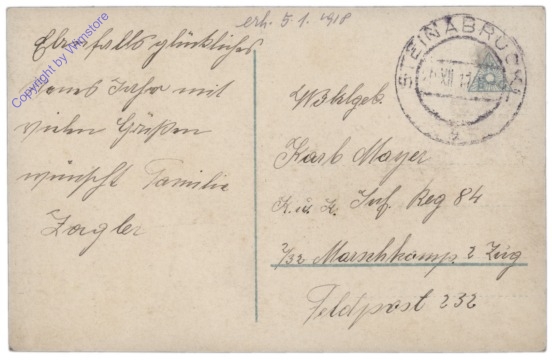 erh. 5 1. 1918
Ebenfalls glückliches
neues Jahr mit
vielen Grüßen
wünscht Familie
Zagler
Copyright by Wignstore
STEINABRÜCKL
XII 17
Wohlgeb.
Karl Mayer
K. u. K. Inf. Reg 84
7/32 Marschkomp 2 Zug
Feldpost 232